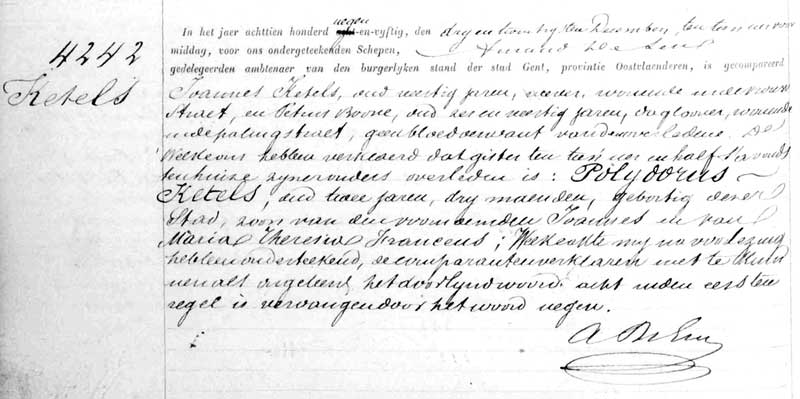 negen
In het jaer achttien honderd acht-en-vyftig, den dry en twintigsten December, ten tien uren voor
4242
middag, voor ons ondergeteekenden Schepen, Amand De
gedelegeerden ambtenaer van den burgerlyken stand der stad Gent, provintie Oostvlaenderen, is gecompareerd
Ketels
Joannes Ketels, oud veertig jaren, wever, wonende in de vrouw
straet, en Petrus Boone, oud zes en veertig jaren, daglooner, wonende
in de palingstraet, geen bloedverwant van den overledene. De
Welke ons hebben verklaerd dat gister ten tien ure en half 's avonds
ten huize zyner ouders overleden is : Polydorus
Ketels, oud twee jaren, dry maenden, geboortig dezer
Stad, zoon van den voornoemden Joannes en van
Maria Theresia Francens; Welke akte wy na voorlezing
hebben onderteekend, de comparanten verklaren niet te kun
nen als ongeleerd, het doorlynd woord acht in den eersten
regel is vervangen door het woord negen.
A De